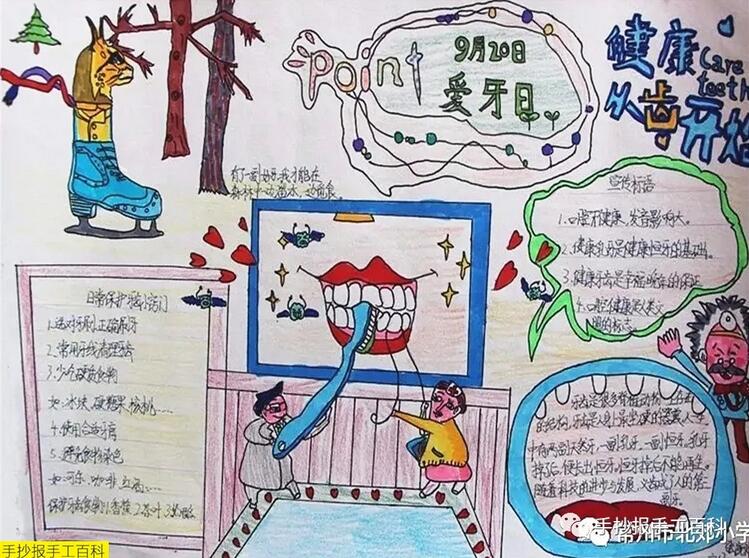 point
9月20日
爱牙日
健康
Care
teeth
从齿开始
有了一副好牙,我才能在
宣传标语
1.口腔不健康,发音影响大。
2.健康乳牙是健康恒牙的基础。
3.健康牙齿是幸福晚年的保证
4.口腔健康是人类文
明的标志。
日常保护牙齿小窍门
1.选对牙刷,正确刷牙
2.常用牙线清理牙齿
3.少吃硬质食物
如:冰块,硬糖果,核桃……
4.使用合适牙膏
5.避免食物染色
如:可乐、咖啡、豆酱……
牙齿是很多脊椎动物
的结构,牙齿是人身上最坚硬的器官,人一
中有两副天然牙,一副乳牙,一副恒牙,乳牙
掉了后,便长出恒牙,恒牙掉后不能再生。
随着科技的进步与发展,义齿成了人的第三
副牙。
手抄报手工百科
手抄报手工百科
常州市北郊小学